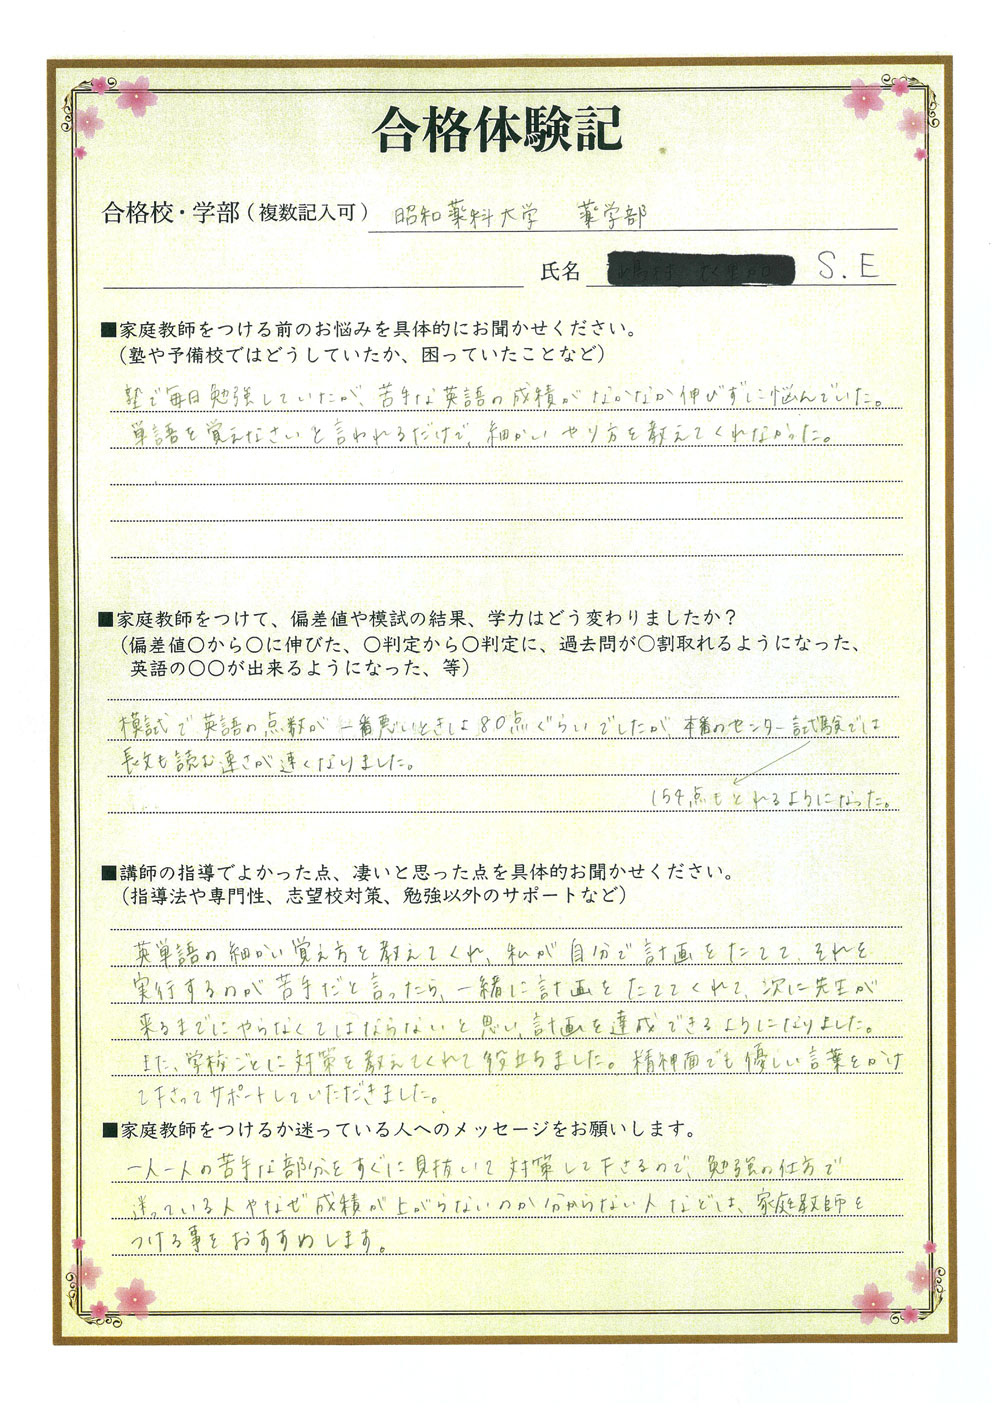 合格体験記
合格校・学部(複数記入可) 昭和薬科大学 薬学部
氏名 S.E
■家庭教師をつける前のお悩みを具体的にお聞かせください。
(塾や予備校ではどうしていたか、困っていたことなど)
塾で毎日勉強していたが、苦手な英語の成績がなかなか伸びずに悩んでいた。
単語を覚えなさいと言われるだけで、細かいやり方を教えてくれなかった。
■家庭教師をつけて、偏差値や模試の結果、学力はどう変わりましたか？
(偏差値〇から〇に伸びた、〇判定から〇判定に、過去問が〇割取れるようになった、
英語の〇〇が出来るようになった、等)
模試で英語の点数が一番悪いときは80点ぐらいでしたが、本番のセンター試験では
長文も読む速さが速くなりました。
154点もとれるようになった。
■講師の指導でよかった点、凄いと思った点を具体的お聞かせください。
(指導法や専門性、志望校対策、勉強以外のサポートなど)
英単語の細かい覚え方を教えてくれ、私が自分で計画をたてて、それを
実行するのが苦手だと言ったら、一緒に計画をたててくれて、次に先生が
来るまでにやらなくてはならないと思い、計画を達成できるようになりました。
また、学校ごとに対策を教えてくれて役立ちました。精神面でも優しい言葉をかけ
て下さってサポートしていただきました。
■家庭教師をつけるか迷っている人へのメッセージをお願いします。
一人一人の苦手な部分をすぐに見抜いて対策して下さるので、勉強の仕方で
迷っている人やなぜ成績が上がらないのか分からない人などは、家庭教師を
つける事をおすすめします。